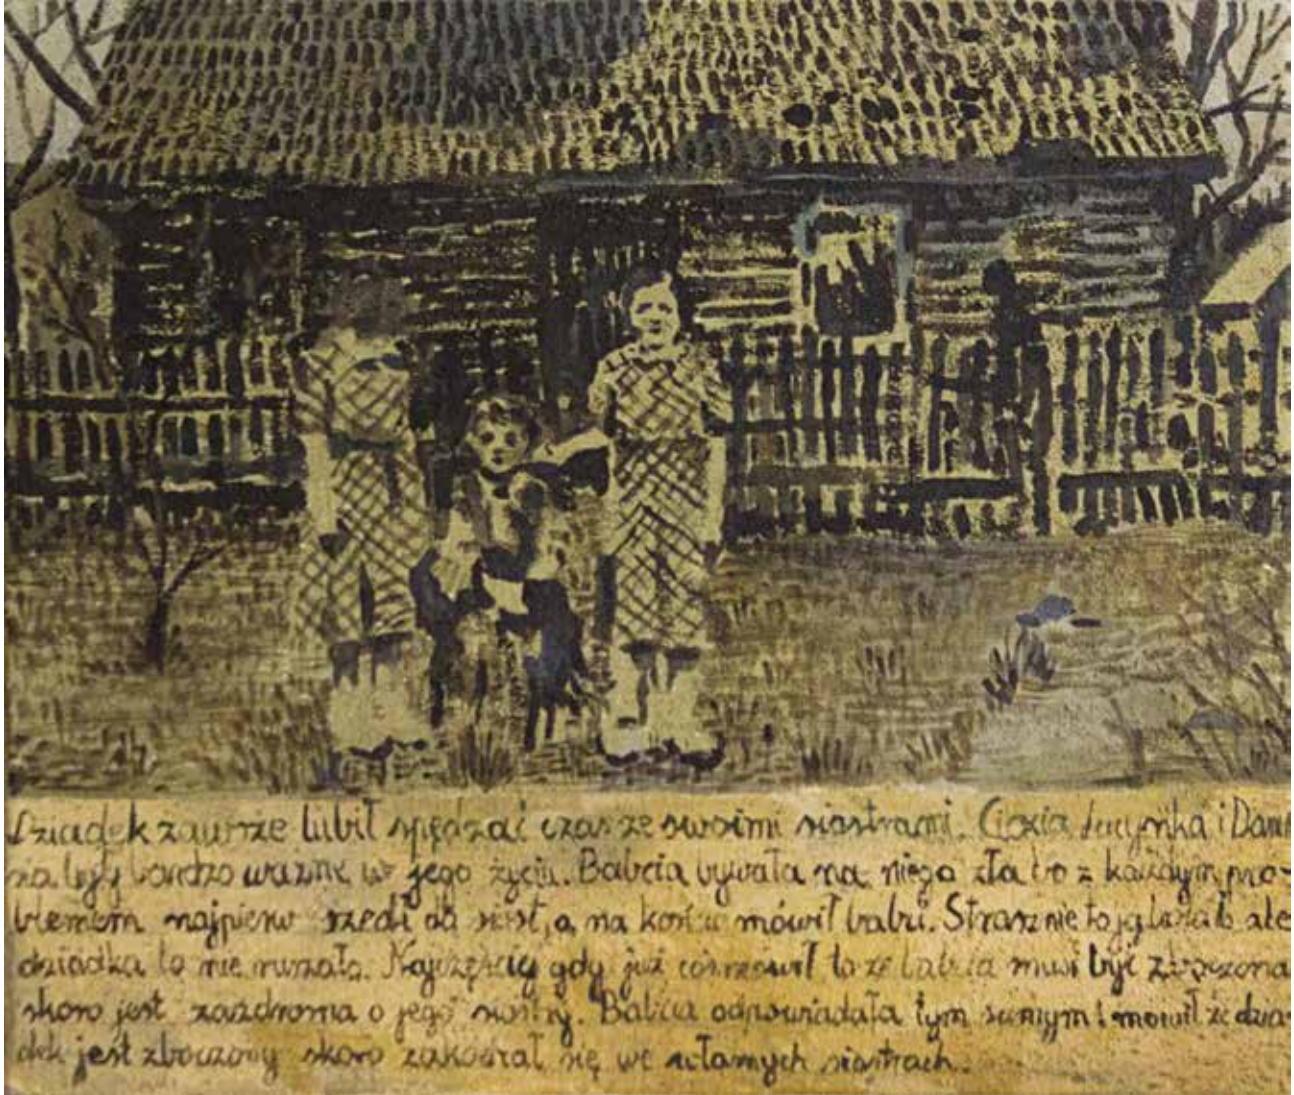 Dziadek zawsze lubił spędzać czas ze swoimi siostrami. Ciocia Lucynka i Danu-
sia były bardzo ważne w jego życiu. Babcia bywała na niego zła bo z każdym pro-
blemem najpierw szedł do sióst, a na końcu mówił babci. Strasznie to ją bolało ale
dziadka to nie ruszało. Najczęściej gdy już coś mówił to że babcia musi być zboczona
skoro jest zazdrosna o jego siostry. Babcia odpowiadała tym samym i mówił że dzia-
dek jest zboczony skoro zakochał się we własnych siostrach.